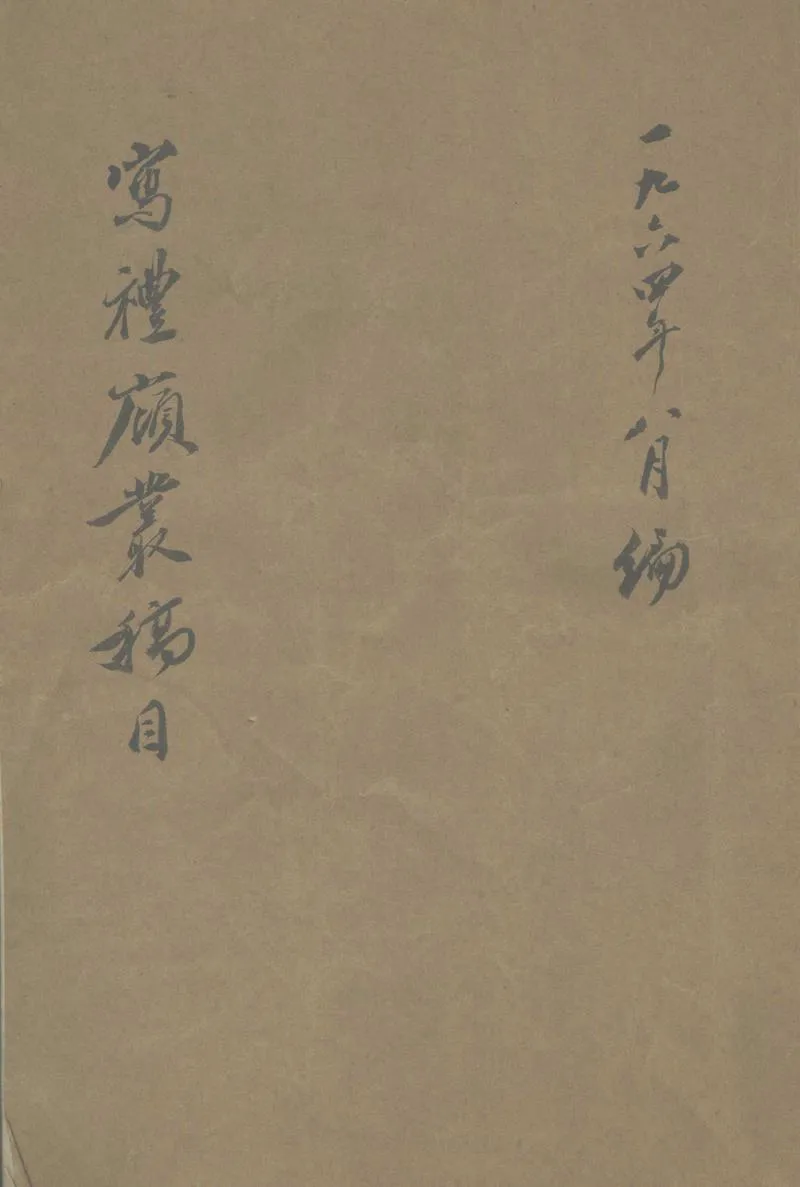 一九六四年八月編
寫禮廎叢稿目